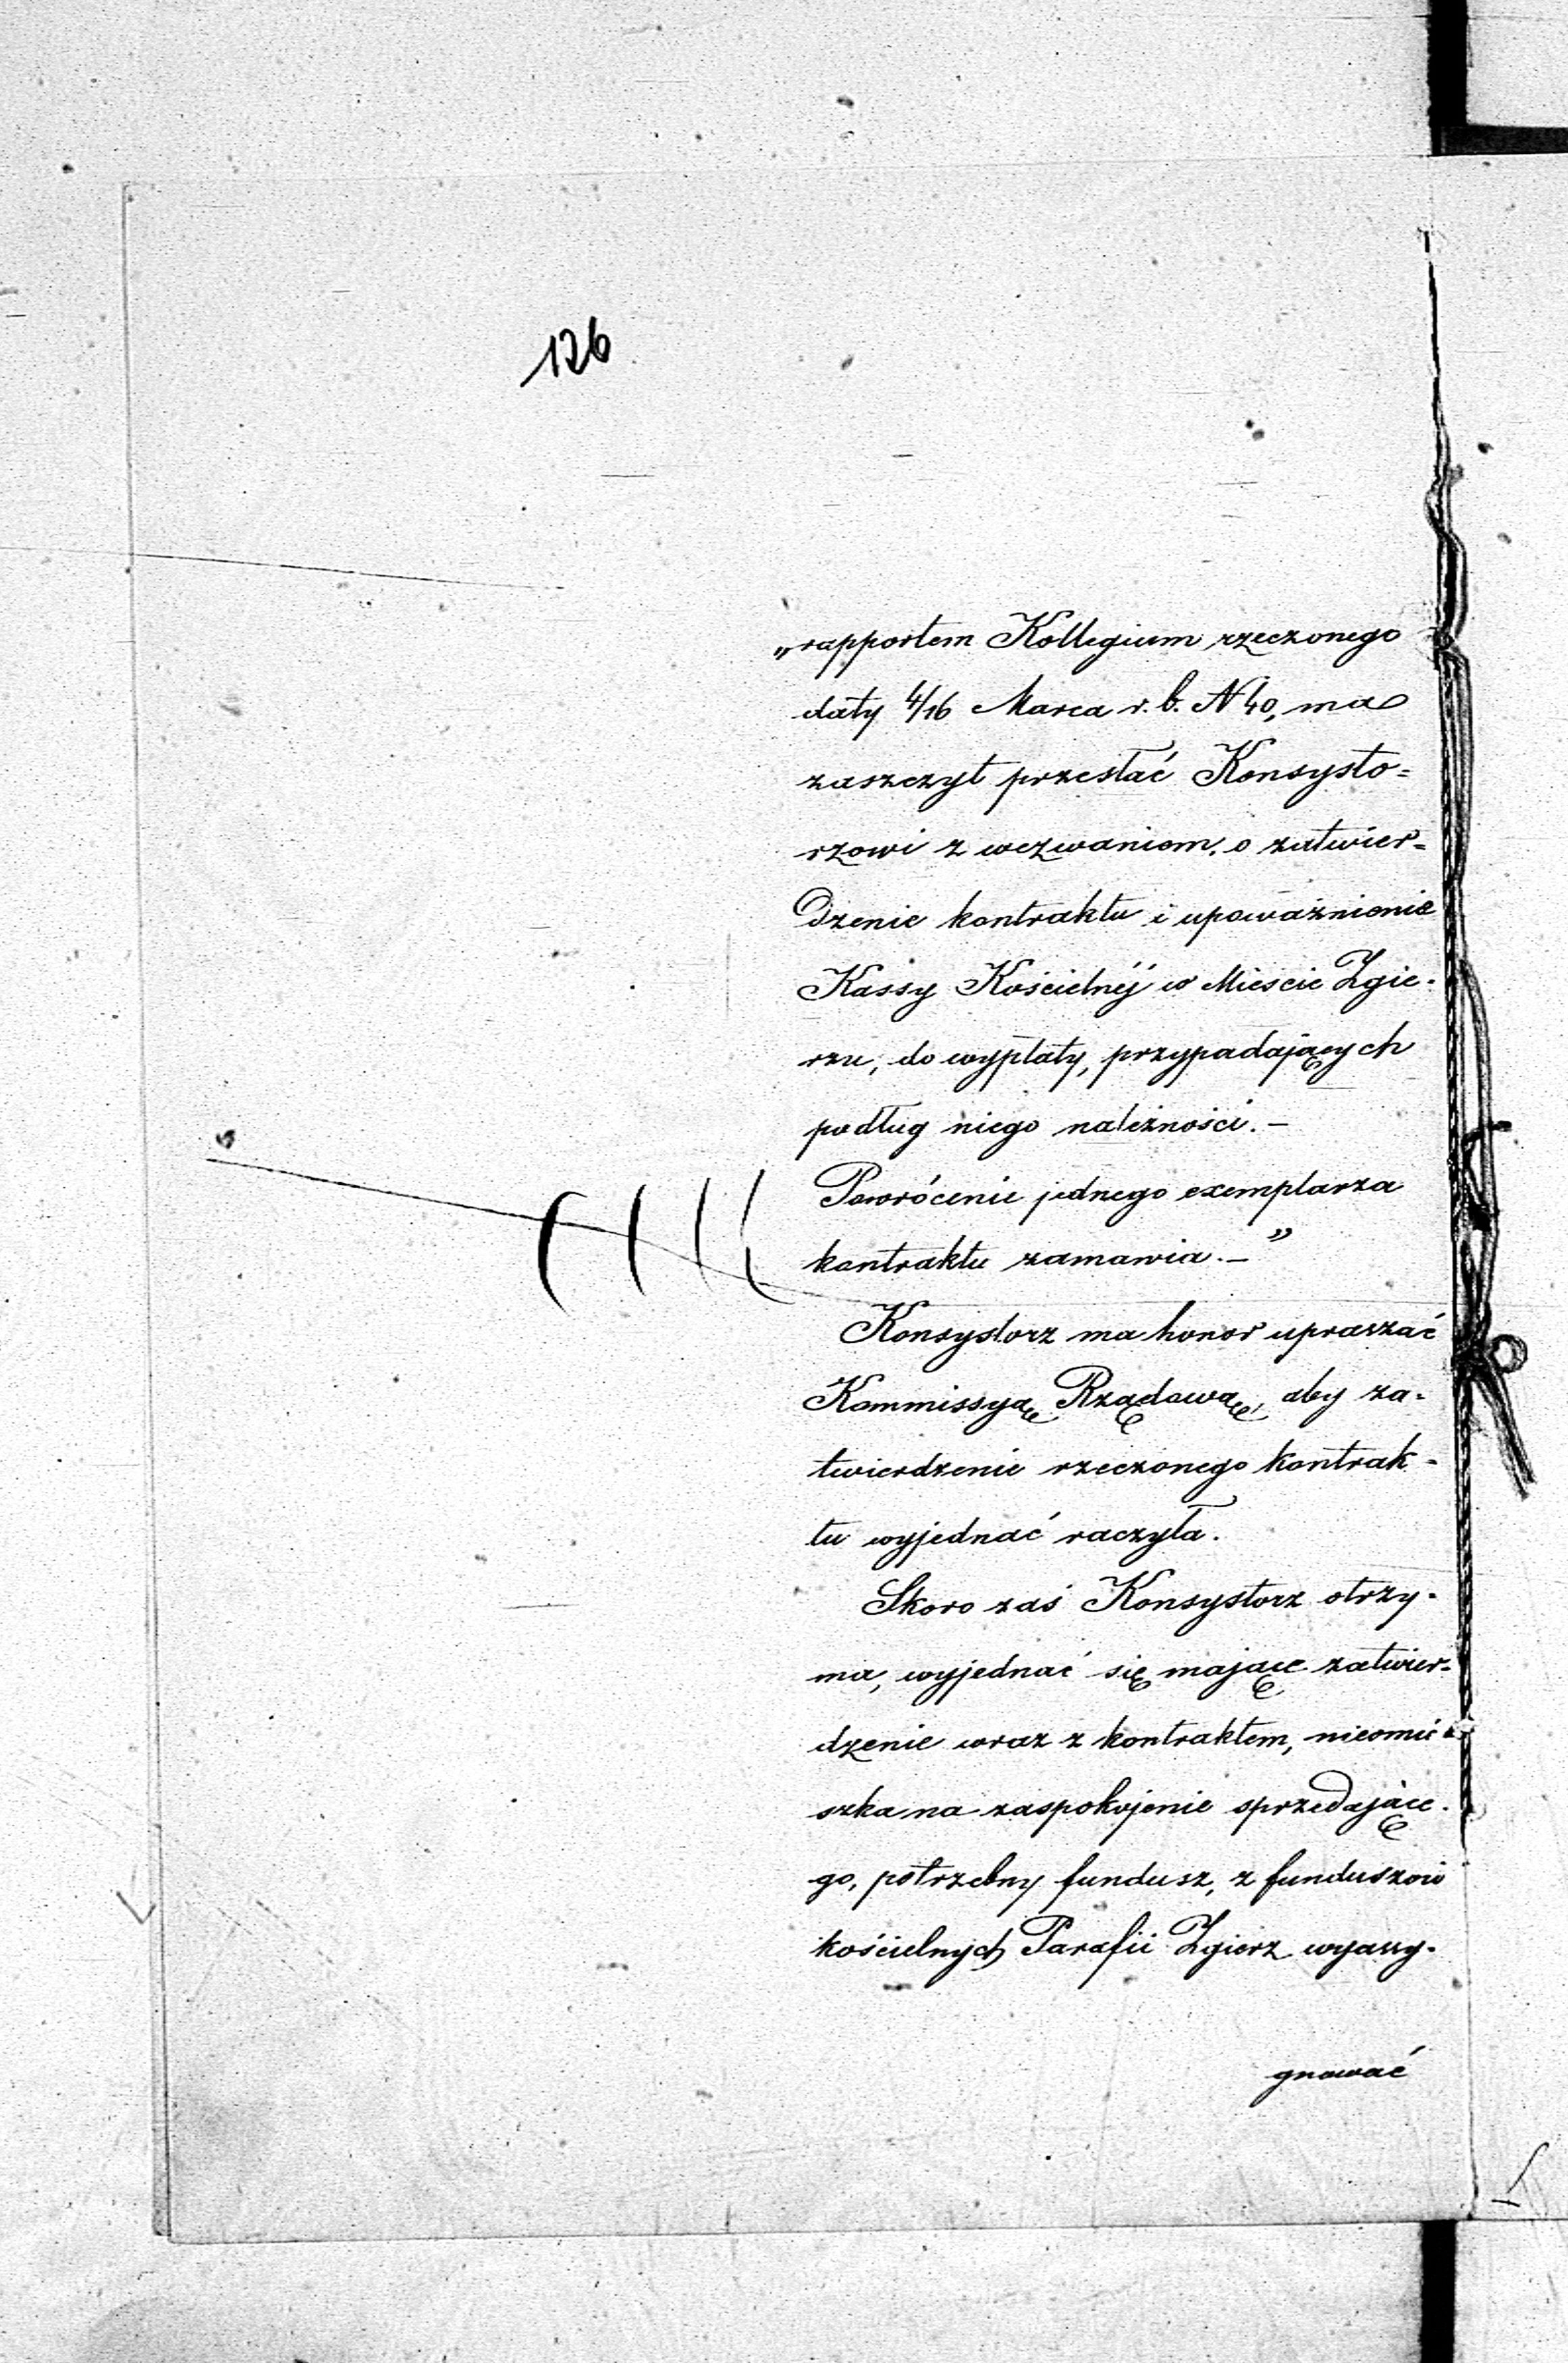 126
„rapportem Kollegium rzeczonego
daty 4/16 Marca r. b. N 40, ma
zaszczyt przesłać Konsysto=
rzowi z wezwaniem, o zatwier=
dzenie kontraktu i upoważnienie
Kassy Kościelnéj w Mieście Zgie-
rzu, do wypłaty, przypadających
podług niego należności.—
Powrócenie jednego exemplarza
kontraktu zamawia.—”
Konsystorz ma honor upraszać
Kommissyą Rządową, aby za-
twierdzenie rzeczonego kontrak-
tu wyjednać raczyła.
Skoro zaś Konsystorz otrzy-
ma, wyjednać się mające zatwier-
dzenie wraz z kontraktem, nieomie-
szka na zaspokojenie sprzedające-
go, potrzebny fundusz, z funduszów
kościelnych Parafii Zgierz wyassy-
gnować